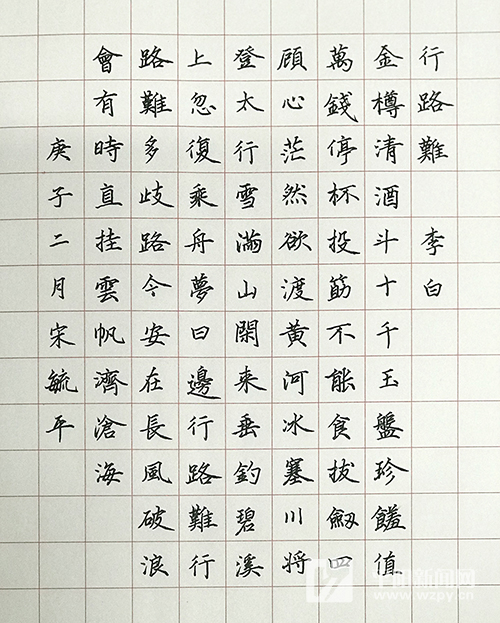 行路難 李白
金樽清酒斗十千玉盤珍饈值
萬錢停杯投筯不能食拔劒四
顧心茫然欲渡黃河冰塞川將
登太行雪滿山閑来垂釣碧溪
上忽復乘舟夢日邊行路難行
路難多歧路今安在長風破浪
會有時直挂雲帆濟滄海
庚子二月宋毓平
新闻网
www.wzpy.cn